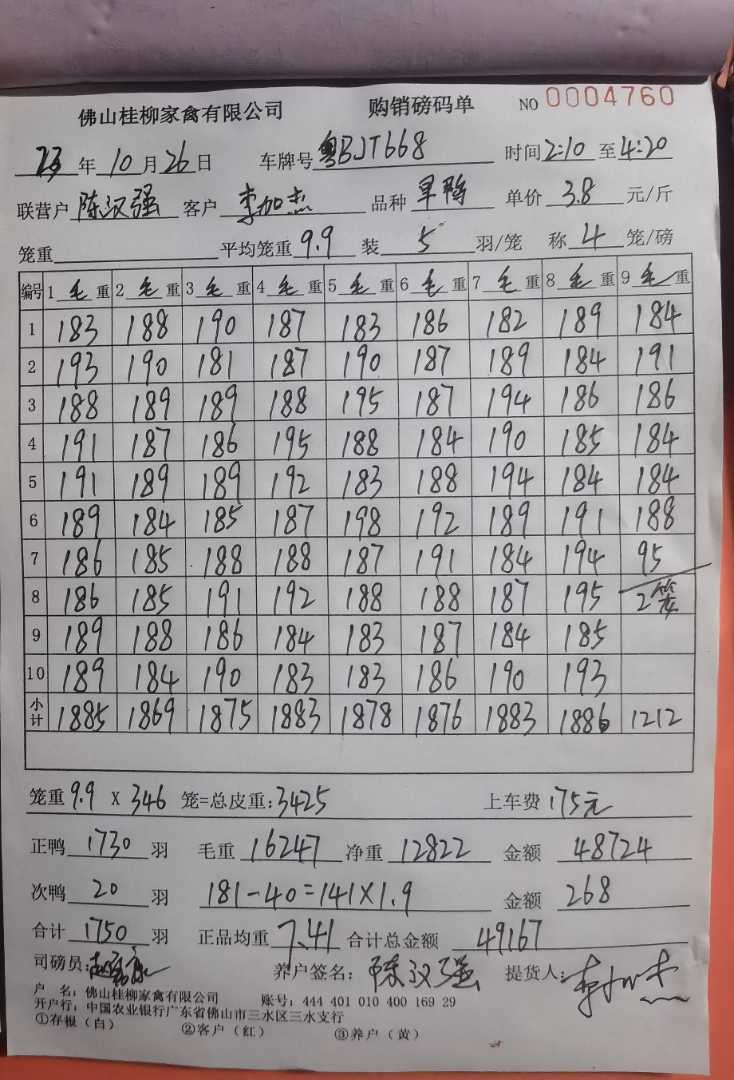 佛山桂柳家禽有限公司 购销磅码单 NO 0004760
23年10月26日 车牌号 粤BJT668 时间2:10至4:20
联营户 陈汉强 客户 李加杰 品种 旱鸭 单价 3.8 元/斤
笼重 平均笼重 9.9 装 5 羽/笼 称 4 笼/磅
编号 1毛重 2毛重 3毛重 4毛重 5毛重 6毛重 7毛重 8毛重 9毛重
1 183 188 190 187 183 186 182 189 184
2 193 190 181 187 190 187 189 184 191
3 188 189 189 188 195 187 194 186 186
4 191 187 186 195 188 184 190 185 184
5 191 189 189 192 183 188 194 184 184
6 189 184 185 187 198 192 189 191 188
7 186 185 188 188 187 191 184 194 95
8 186 185 191 192 188 188 187 195 2笼
9 189 188 186 184 183 187 184 185
10 189 184 190 183 183 186 190 193
小计 1885 1869 1875 1883 1878 1876 1883 1886 1212
笼重 9.9 X 346 笼=总皮重:3425 上车费 175元
正鸭 1730 羽 毛重 16247 净重 12822 金额 48724
次鸭 20 羽 181-40=141X1.9 金额 268
合计 1750 羽 正品均重 7.41 合计总金额 49167
司磅员: 养户签名: 陈汉强 提货人: 李加杰
户 名: 佛山桂柳家禽有限公司 账号: 444 401 010 400 169 29
开户行: 中国农业银行广东省佛山市三水区三水支行
①存根(白) ②客户(红) ③养户(黄)